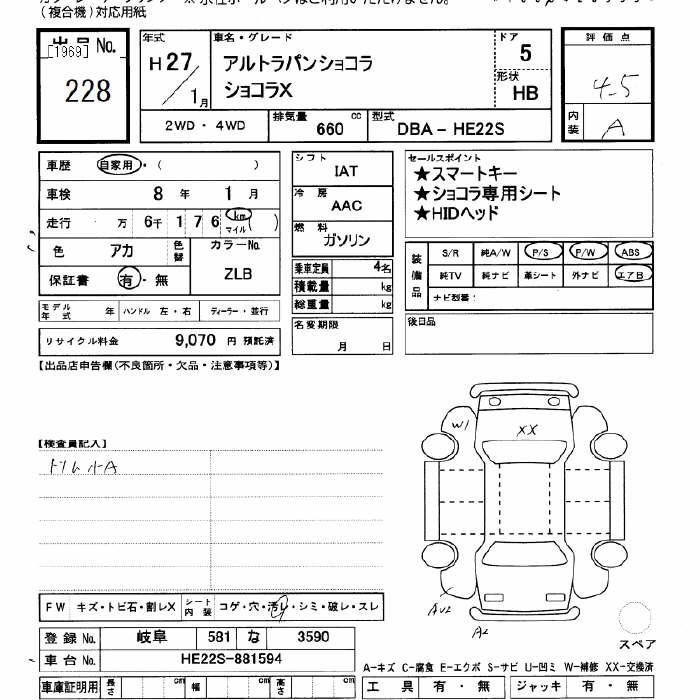 (複合機)対応用紙
出品No.
[1969]
228
年式
H27/1月
車名・グレード
アルトラパンショコラ
ショコラX
ドア
5
形状
HB
評価点
4.5
内装
A
2WD・4WD
排気量 660 cc
型式 DBA-HE22S
車歴 自家用・( )
車検 8年 1月
走行 万 6千 1 7 6 km マイル ( )
色 アカ 色替
カラーNo.
ZLB
保証書 有・無
モデル年式 年 ハンドル 左・右 ディーラー・並行
リサイクル料金 9,070 円 預託済
シフト
IAT
冷房
AAC
燃料
ガソリン
乗車定員 4名
積載量 kg
総重量 kg
名変期限
月 日
セールスポイント
★スマートキー
★ショコラ専用シート
★HIDヘッド
装備品
S/R 純A/W P/S P/W ABS
純TV 純ナビ 革シート 外ナビ エアB
ナビ型番:
後日品
【出品店申告欄(不良箇所・欠品・注意事項等)】
【検査員記入】
トリム小A
W1
XX
AU2
A2
スペア
FW キズ・トビ石・割レX シート内装 コゲ・穴・汚レ・シミ・破レ・スレ
登録No. 岐阜 581 な 3590
車台No. HE22S-881594
A-キズ C-腐食 E-エクボ S-サビ U-凹ミ W-補修 XX-交換済
車庫証明用 長さ cm 幅 cm 高さ cm
工具 有・無 ジャッキ 有・無